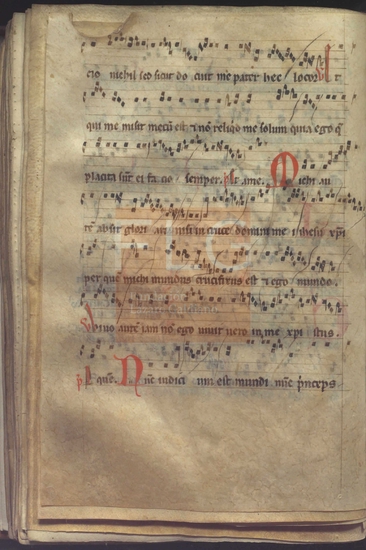 cio nichil sed sicut do cuit me pater hec locor Et
qui me misit mecū est ⁊ nō reliqͥd me solum quia ego q̄
placita sūt ei facio semper. ame. Michi au
tē absit glori ari nisi in cruce domini me i ihesu xp̄i
per quem michi mundus crucifixus est ⁊ ego mundo.
Vivo autē iam nō ego vivit vero in me xpi stus.
Nūc iudici um est mundi nūc pͥnceps